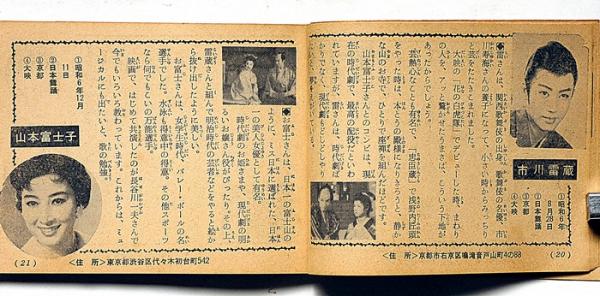 市川雷蔵
①昭和6年
8月28日
②日本舞踊
③京都
④大映
◆雷さんは、関西歌舞伎の出身。歌舞伎の名優、市
川寿海さんの養子になって、小さい時からみっちり
と芸をたたきこまれました。
大映の「花の白虎隊」でデビューした時、まわり
の人を、アッと驚かせたうまさは、こういう下地が
あったからでしょう。
芸熱心なことも有名で、「忠臣蔵」で浅野内匠頭
をやった時は、本とうの殿様になりきろうと、静か
な山のお寺で、ひとりで座禅を組んだほどです。
山本富士子さんとのコンビは、現
在の時代劇で、最高の配役といわ
れていますが、雷さんは、時代劇ば
かりでなく、現代劇も、どしどしや
<住 所>京都市右京区鳴滝音戸山町4の88
(20)
◆お富士さんは、日本一の富士山の
ように、ミス日本に選ばれた、日本
一の美人女優として有名。
時代劇のお姫さまや、現代劇の明
るいお嬢さんがぴったり。その上、
雷蔵さんと組んで明治時代の芸者などをやると絵か
ら抜け出したように美しい。
お富士さんは、女学生時代、バレー・ボールの名
選手でした。水泳も得意中の得意。その他スポーツ
なら何でもこいの万能選手。
映画で、はじめて共演したのが長谷川一夫さんで
今でもいろいろ教わっています。これからは、ミュ
ージカルにも出たいと、歌の勉強。
①昭和6年12月
11日
②日本舞踊
③京都
④大映
山本富士子
<住 所>東京都渋谷区代々木初台町542
(21)